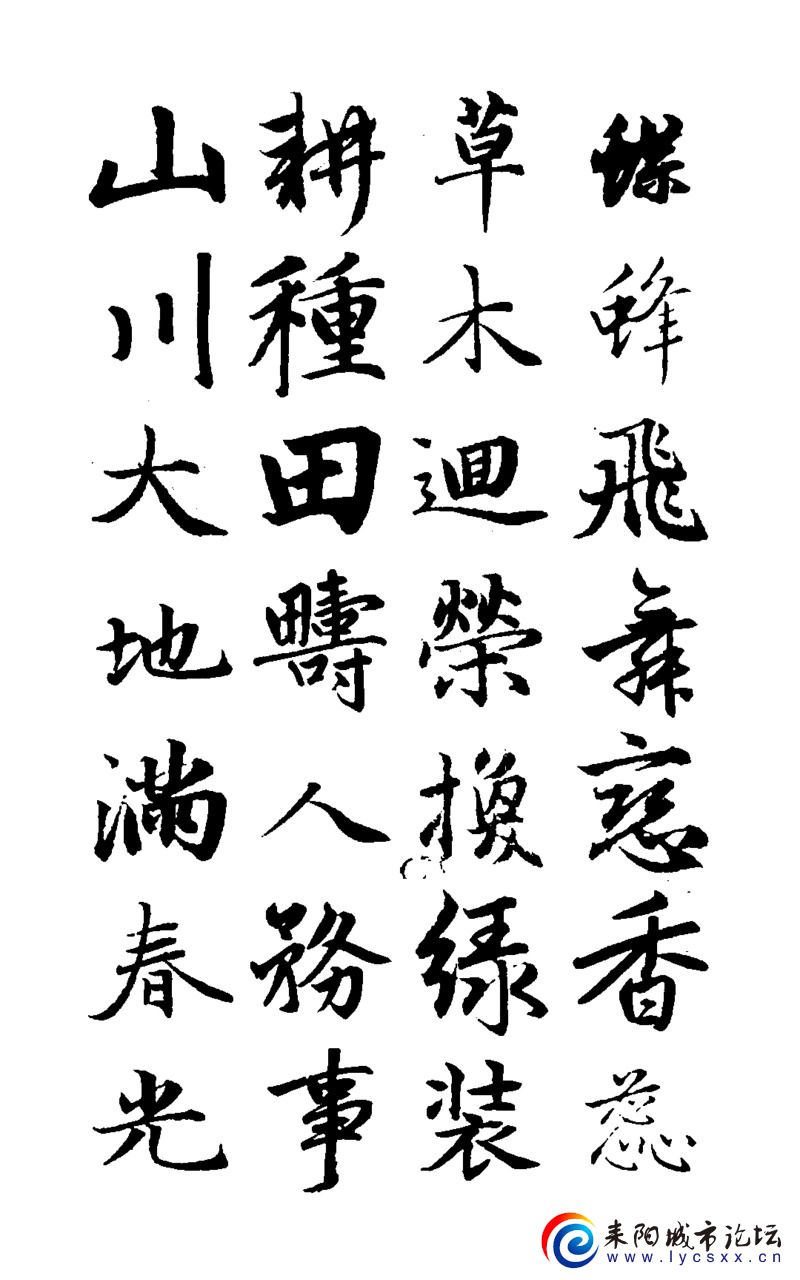 蝶蜂飛舞恋香蕊
草木迴榮換綠裝
耕種田疇人務事
山川大地滿春光
耒阳城市论坛
www.lycsxx.cn